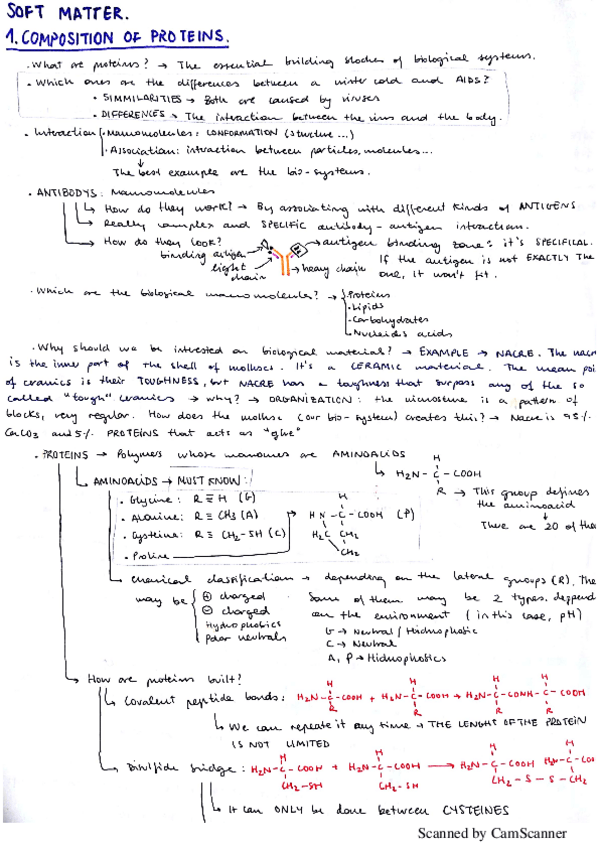 SOFT MATTER.
1. COMPOSITION OF PROTEINS.
· What are proteins? → The essential building blocks of biological systems.
· Which ones are the differences between a winter cold and AIDS?
· SIMMILARITIES → Both are caused by viruses
· DIFFERENCES → The interaction between the virus and the body.
· Interaction · Macromolecules: CONFORMATION (structure ...)
· Association: interaction between particles, molecules...
The best example are the bio-systems.
· ANTIBODYS: Macromolecules
How do they work? → By associating with different kinds of ANTIGENS
Really complex and SPECIFIC antibody-antigen interaction.
How do they look?
binding antigen
light chain
→ heavy chain
→ antigen binding zone: it's SPECIFICAL.
If the antigen is not EXACTLY THE
one, it won't fit.
· Which are the biological macromolecules? → · Proteins
· Lipids
· Carbohydrates
· Nucleids acids
· Why should we be interested on biological material? → EXAMPLE → NACRE. The nacre
is the inner part of the shell of molluscs. It's a CERAMIC material. The mean poi
of ceramics is their TOUGHNESS, but NACRE has a toughness that surpass any of the so
called "tough" ceramics → why? → ORGANIZATION: the microstructure is a pattern of
blocks, very regular. How does the mollusc (our bio-system) creates this? → Nacre is 95%
CaCO3 and 5% PROTEINS that acts as "glue"
· PROTEINS → Polymers whose monomers are AMINOACIDS
H
H2N - C - COOH
R → This group defines
the aminoacid
There are 20 of the
AMINOACIDS → MUST KNOW:
· Glycine: R ≡ H (G)
· Alanine: R ≡ CH3 (A)
· Cysteine: R ≡ CH2-SH (C)
· Proline
H
HN - C - COOH (P)
H2C CH2
CH2
Chemical classification → depending on the lateral groups (R). The
may be ⊕ charged
⊖ charged
Hydrophobics
Polar neutrals
Some of them may be 2 types, deppend
on the environment (in this case, pH)
G → Neutral / Hidrophobic
C → Neutral
A, P → Hidrophobics
How are proteins built?
Covalent peptide bonds: H2N-C-COOH + H2N-C-COOH → H2N-C-CONH-C-COOH
We can repeat it any time → THE LENGHT OF THE PROTEIN
IS NOT LIMITED
Disulfide bridge: H2N-C-COOH + H2N-C-COOH → H2N-C-COOH H2N-C-COO
CH2-SH CH2-SH CH2-S-S-CH2
It can ONLY be done between CYSTEINES
Scanned by CamScanner